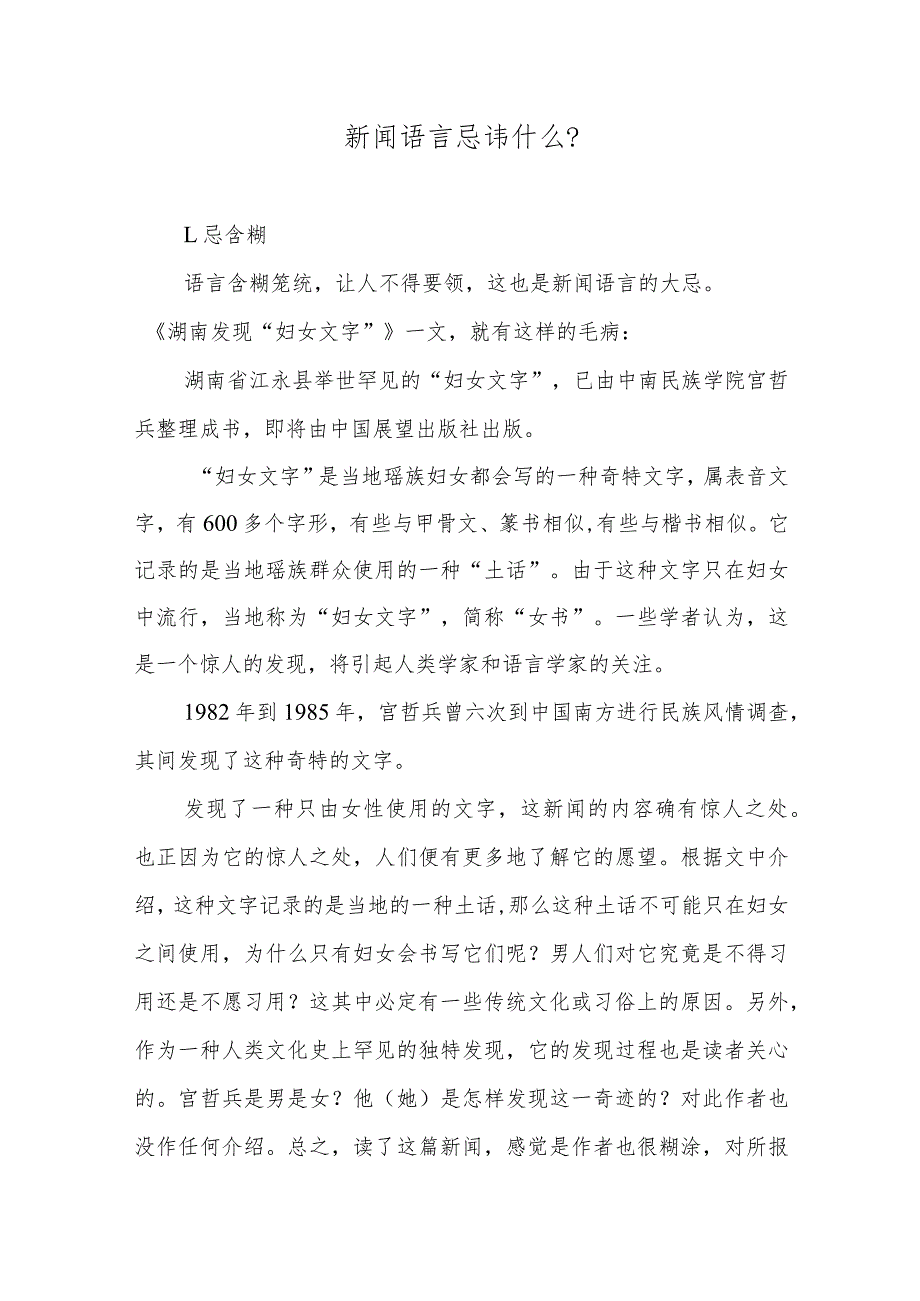 新闻语言忌讳什么?
L忌含糊
语言含糊笼统，让人不得要领，这也是新闻语言的大忌。
《湖南发现“妇女文字”》一文，就有这样的毛病：
湖南省江永县举世罕见的“妇女文字”，已由中南民族学院宫哲
兵整理成书，即将由中国展望出版社出版。
“妇女文字”是当地瑶族妇女都会写的一种奇特文字，属表音文
字，有600多个字形，有些与甲骨文、篆书相似,有些与楷书相似。它
记录的是当地瑶族群众使用的一种“土话”。由于这种文字只在妇女
中流行，当地称为“妇女文字”，简称“女书”。一些学者认为，这
是一个惊人的发现，将引起人类学家和语言学家的关注。
1982年到1985年，宫哲兵曾六次到中国南方进行民族风情调查，
其间发现了这种奇特的文字。
发现了一种只由女性使用的文字，这新闻的内容确有惊人之处。
也正因为它的惊人之处，人们便有更多地了解它的愿望。根据文中介
绍，这种文字记录的是当地的一种土话,那么这种土话不可能只在妇女
之间使用，为什么只有妇女会书写它们呢？男人们对它究竟是不得习
用还是不愿习用？这其中必定有一些传统文化或习俗上的原因。另外，
作为一种人类文化史上罕见的独特发现，它的发现过程也是读者关心
的。宫哲兵是男是女？他（她）是怎样发现这一奇迹的？对此作者也
没作任何介绍。总之，读了这篇新闻，感觉是作者也很糊涂，对所报